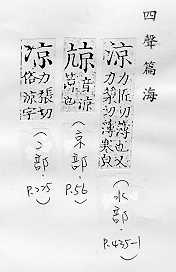 四聲篇海
涼 力匠切薄也又
力切薄寒皃
(水部,
P.435-1)
音涼
也
(京部,
P.56)
凉 力張切
俗涼字
(冫部,
P.275)